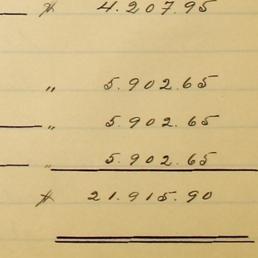 $ 4.207.95
" 5.902.65
" 5.902.65
" 5.902.65
$ 21.915.90